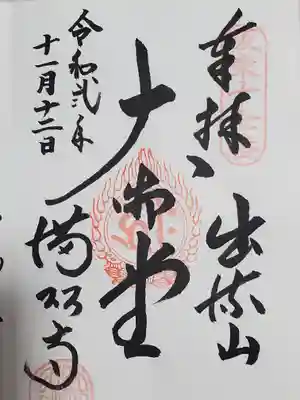 奉拝、出流山
大御堂
令和弐年
十一月十二日
満願寺